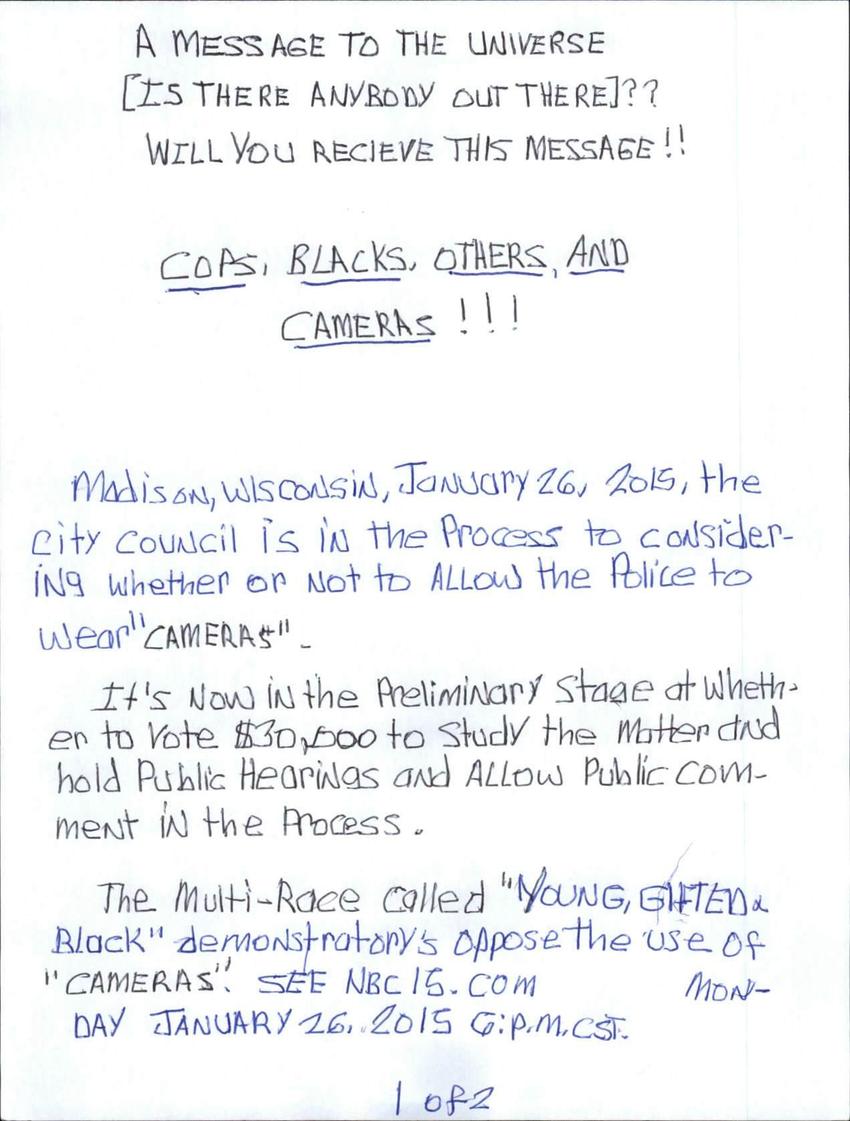 A MESSAGE TO THE UNIVERSE
[IS THERE ANYBODY OUT THERE]??
WILL YOU RECIEVE THIS MESSAGE!!
COPS, BLACKS, OTHERS, AND
CAMERAS !!!
Madison, Wisconsin, January 26, 2015, the
city council is in the Process to consider-
ing whether or Not to ALLOW the Police to
wear "CAMERAS".
It's Now in the Preliminary Stage at wheth-
er to Vote $30,000 to Study the Matter and
hold Public Hearings and ALLOW Public com-
ment in the Process.
The Multi-Race called "YOUNG, GIFTED &
Black" demonstratory's oppose the use of
"CAMERAS". SEE NBC15.COM MON-
DAY JANUARY 26, 2015 6:P.M. CST.
1 of 2